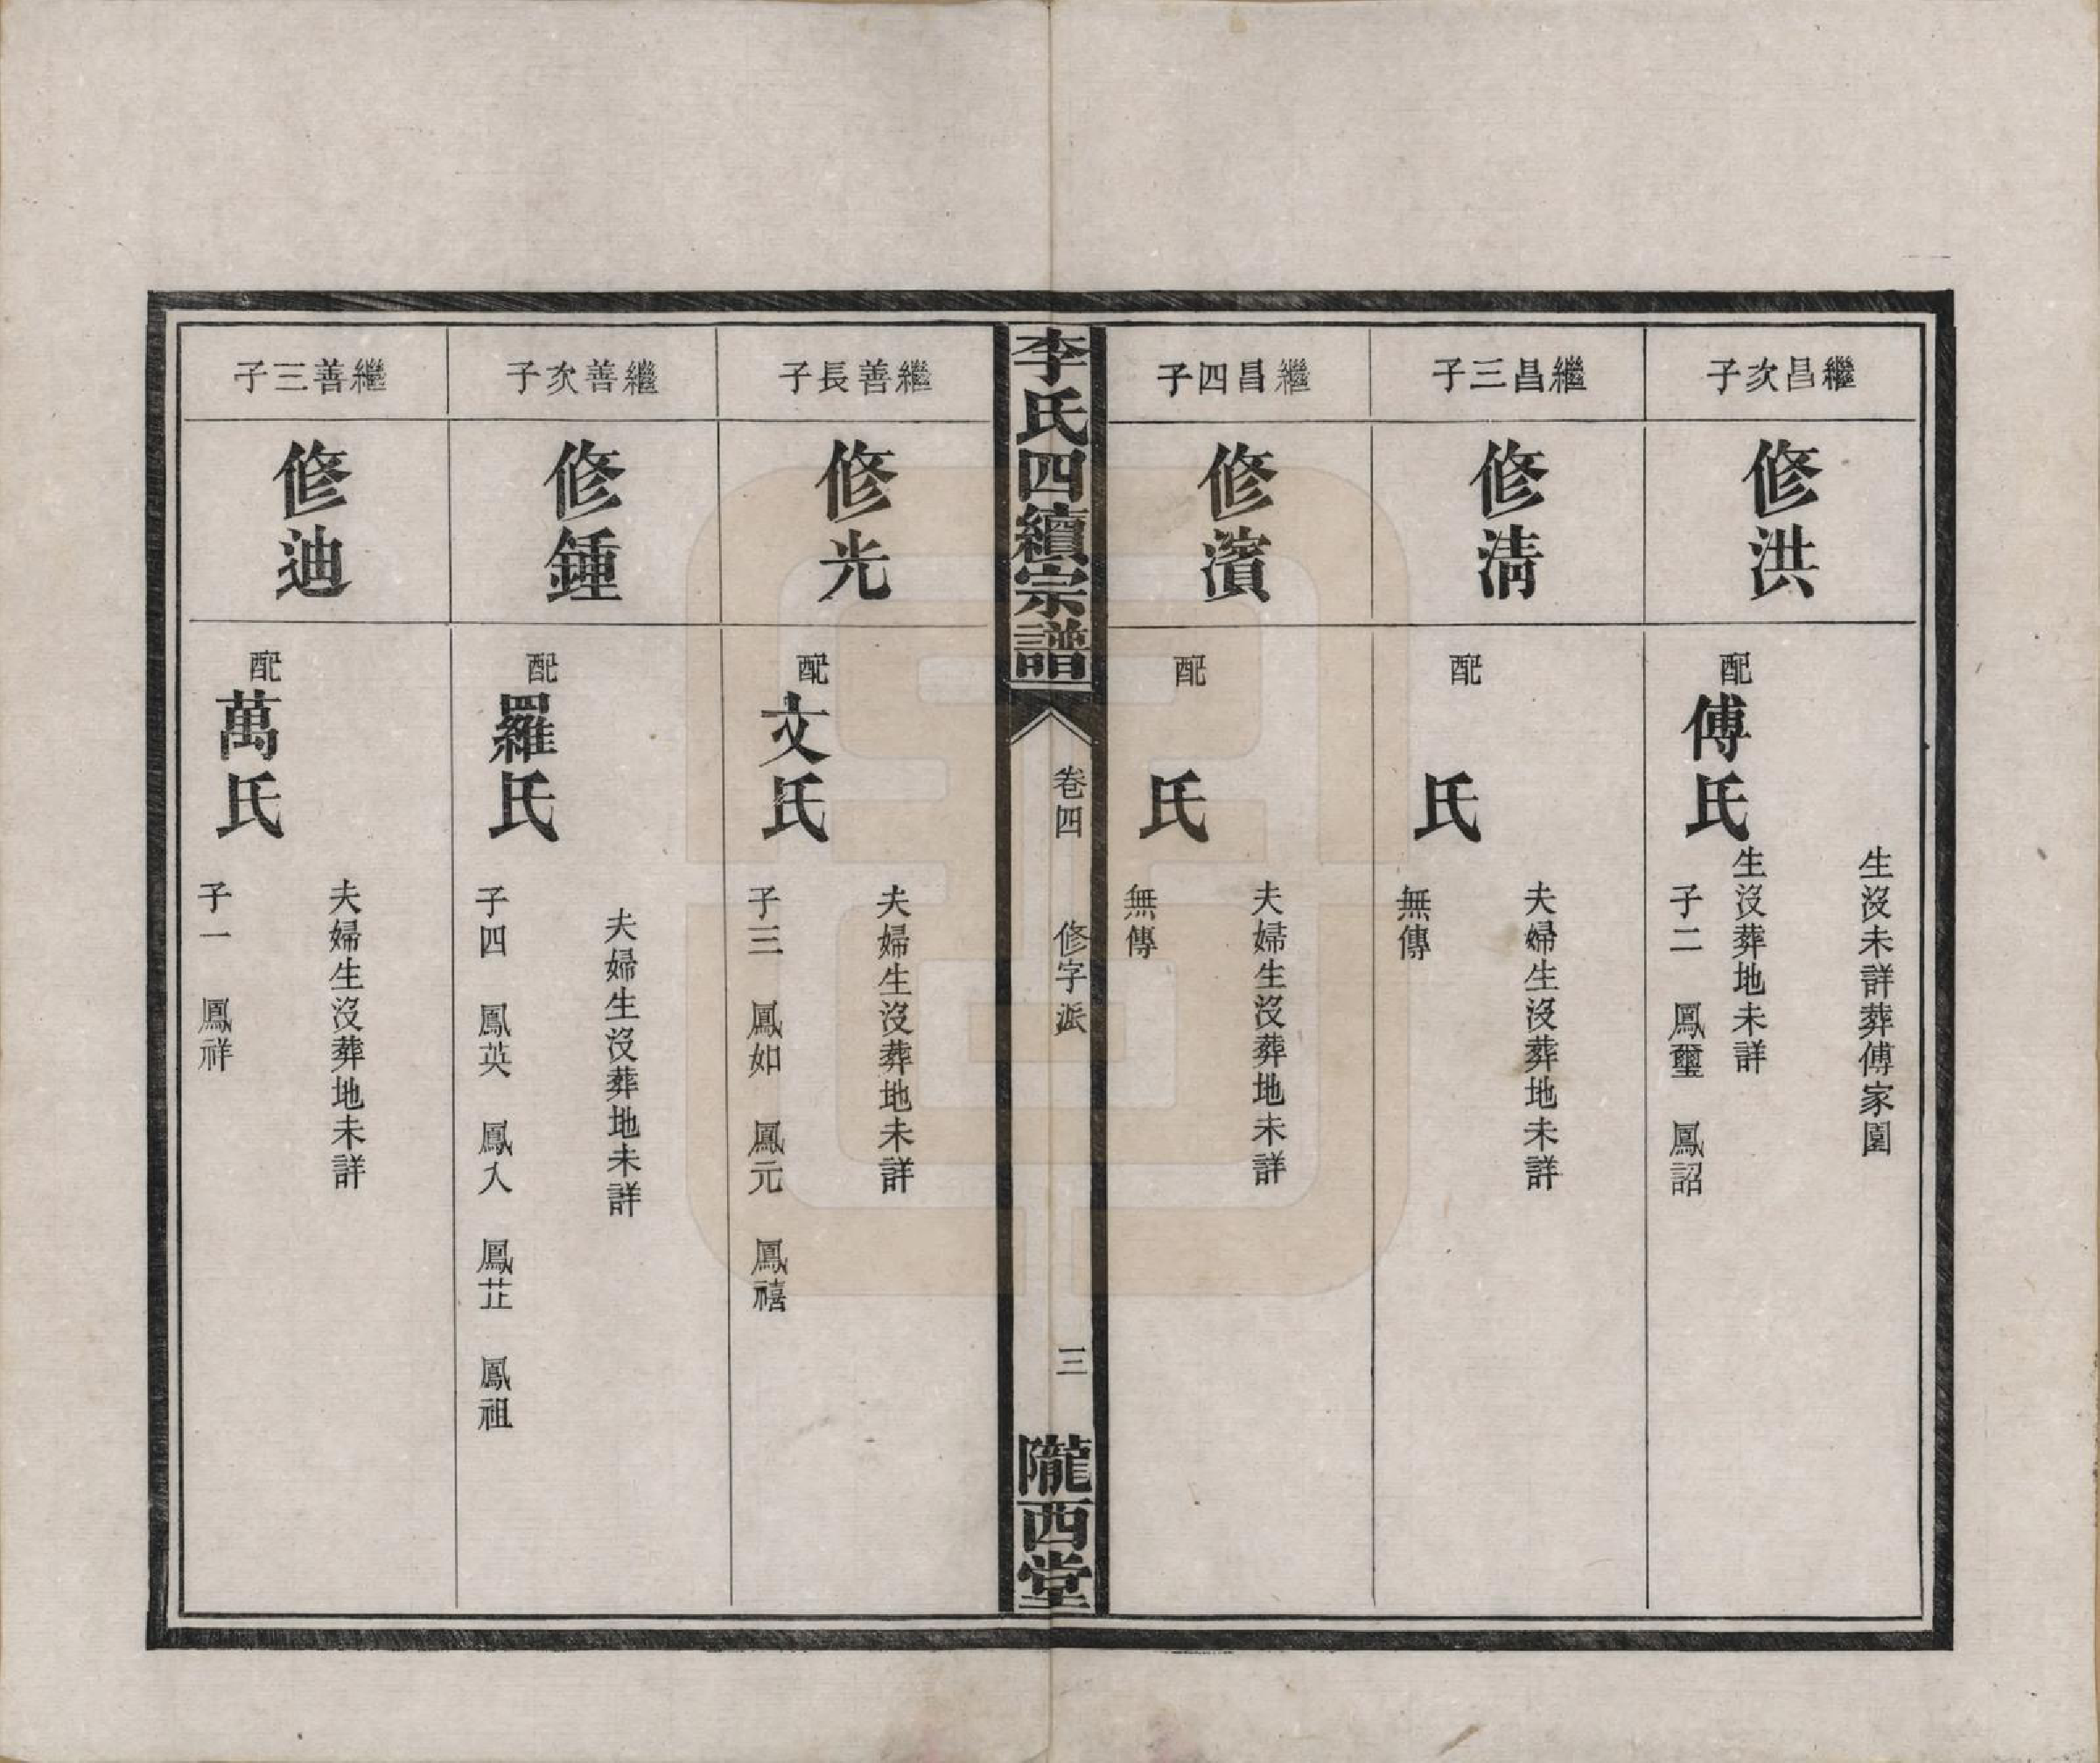 繼昌次子
修洪
生沒未詳葬傅家園
配傅氏
生沒葬地未詳
子二 鳳璽 鳳詔
繼昌三子
修清
夫婦生沒葬地未詳
配 氏
無傳
繼昌四子
修濱
夫婦生沒葬地未詳
配 氏
無傳
李氏四續宗譜
卷四 修字派 三
隴西堂
繼善長子
修光
夫婦生沒葬地未詳
配文氏
子三 鳳如 鳳元 鳳禧
繼善次子
修鍾
夫婦生沒葬地未詳
配羅氏
子四 鳳英 鳳入 鳳芷 鳳祖
繼善三子
修迪
夫婦生沒葬地未詳
配萬氏
子一 鳳祥